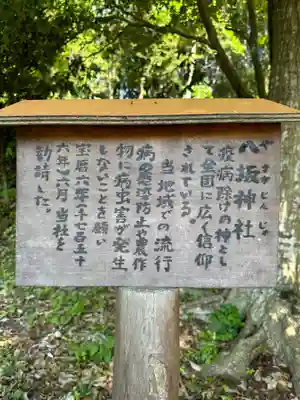 八坂神社
やさかじんじゃ
疫病除けの神とし
て全国に広く信仰
されている。
当地域での流行
病の悪疫防止や農作
物に病虫害が発生
しないことを願い
宝暦六年(一七五十
六年)六月 当社を
勧請した。